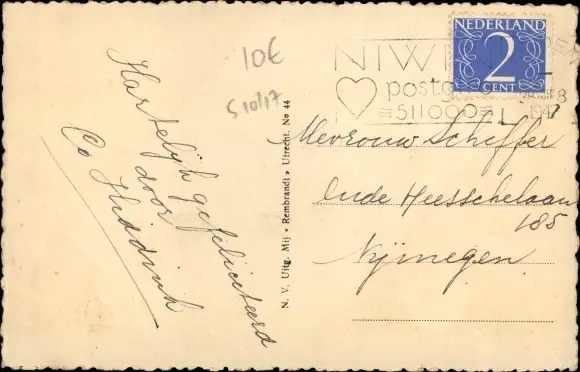 10€
S10/17
Hartelijk gefeliciteerd
door
Co Hiddink
N. V. Uitg. Mij « Rembrandt » Utrecht. No 44
NIWI
posta
511000
1947
NEDERLAND
2
CENT
Mevrouw Scheffer
Oude Heesschelaan
185
Nymegen.